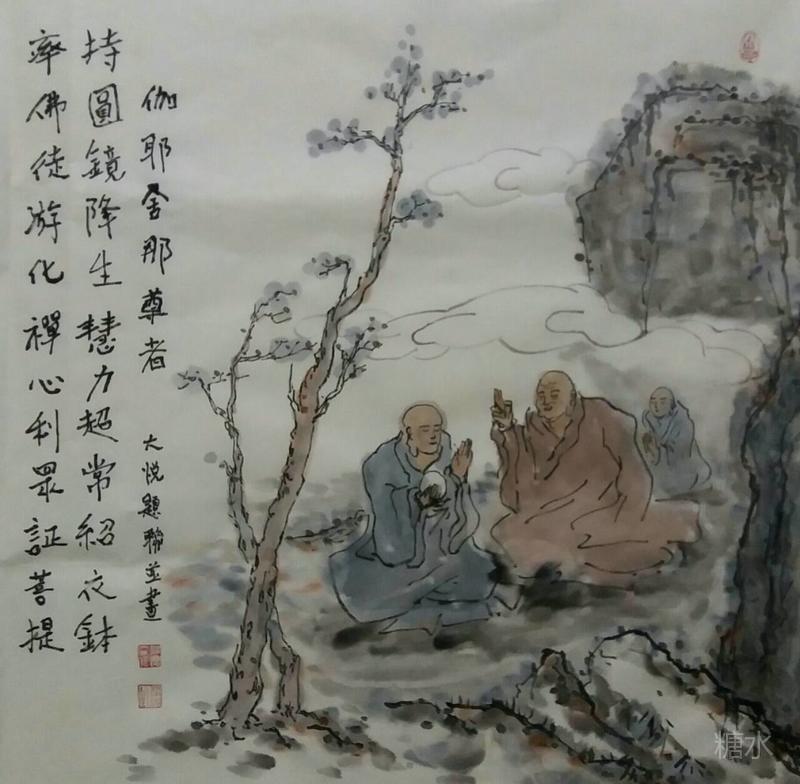 伽耶舍那尊者 大悦題聯並畫
持圓鏡降生慧力超常紹衣鉢
率佛徒游化禪心利眾証菩提
糖水